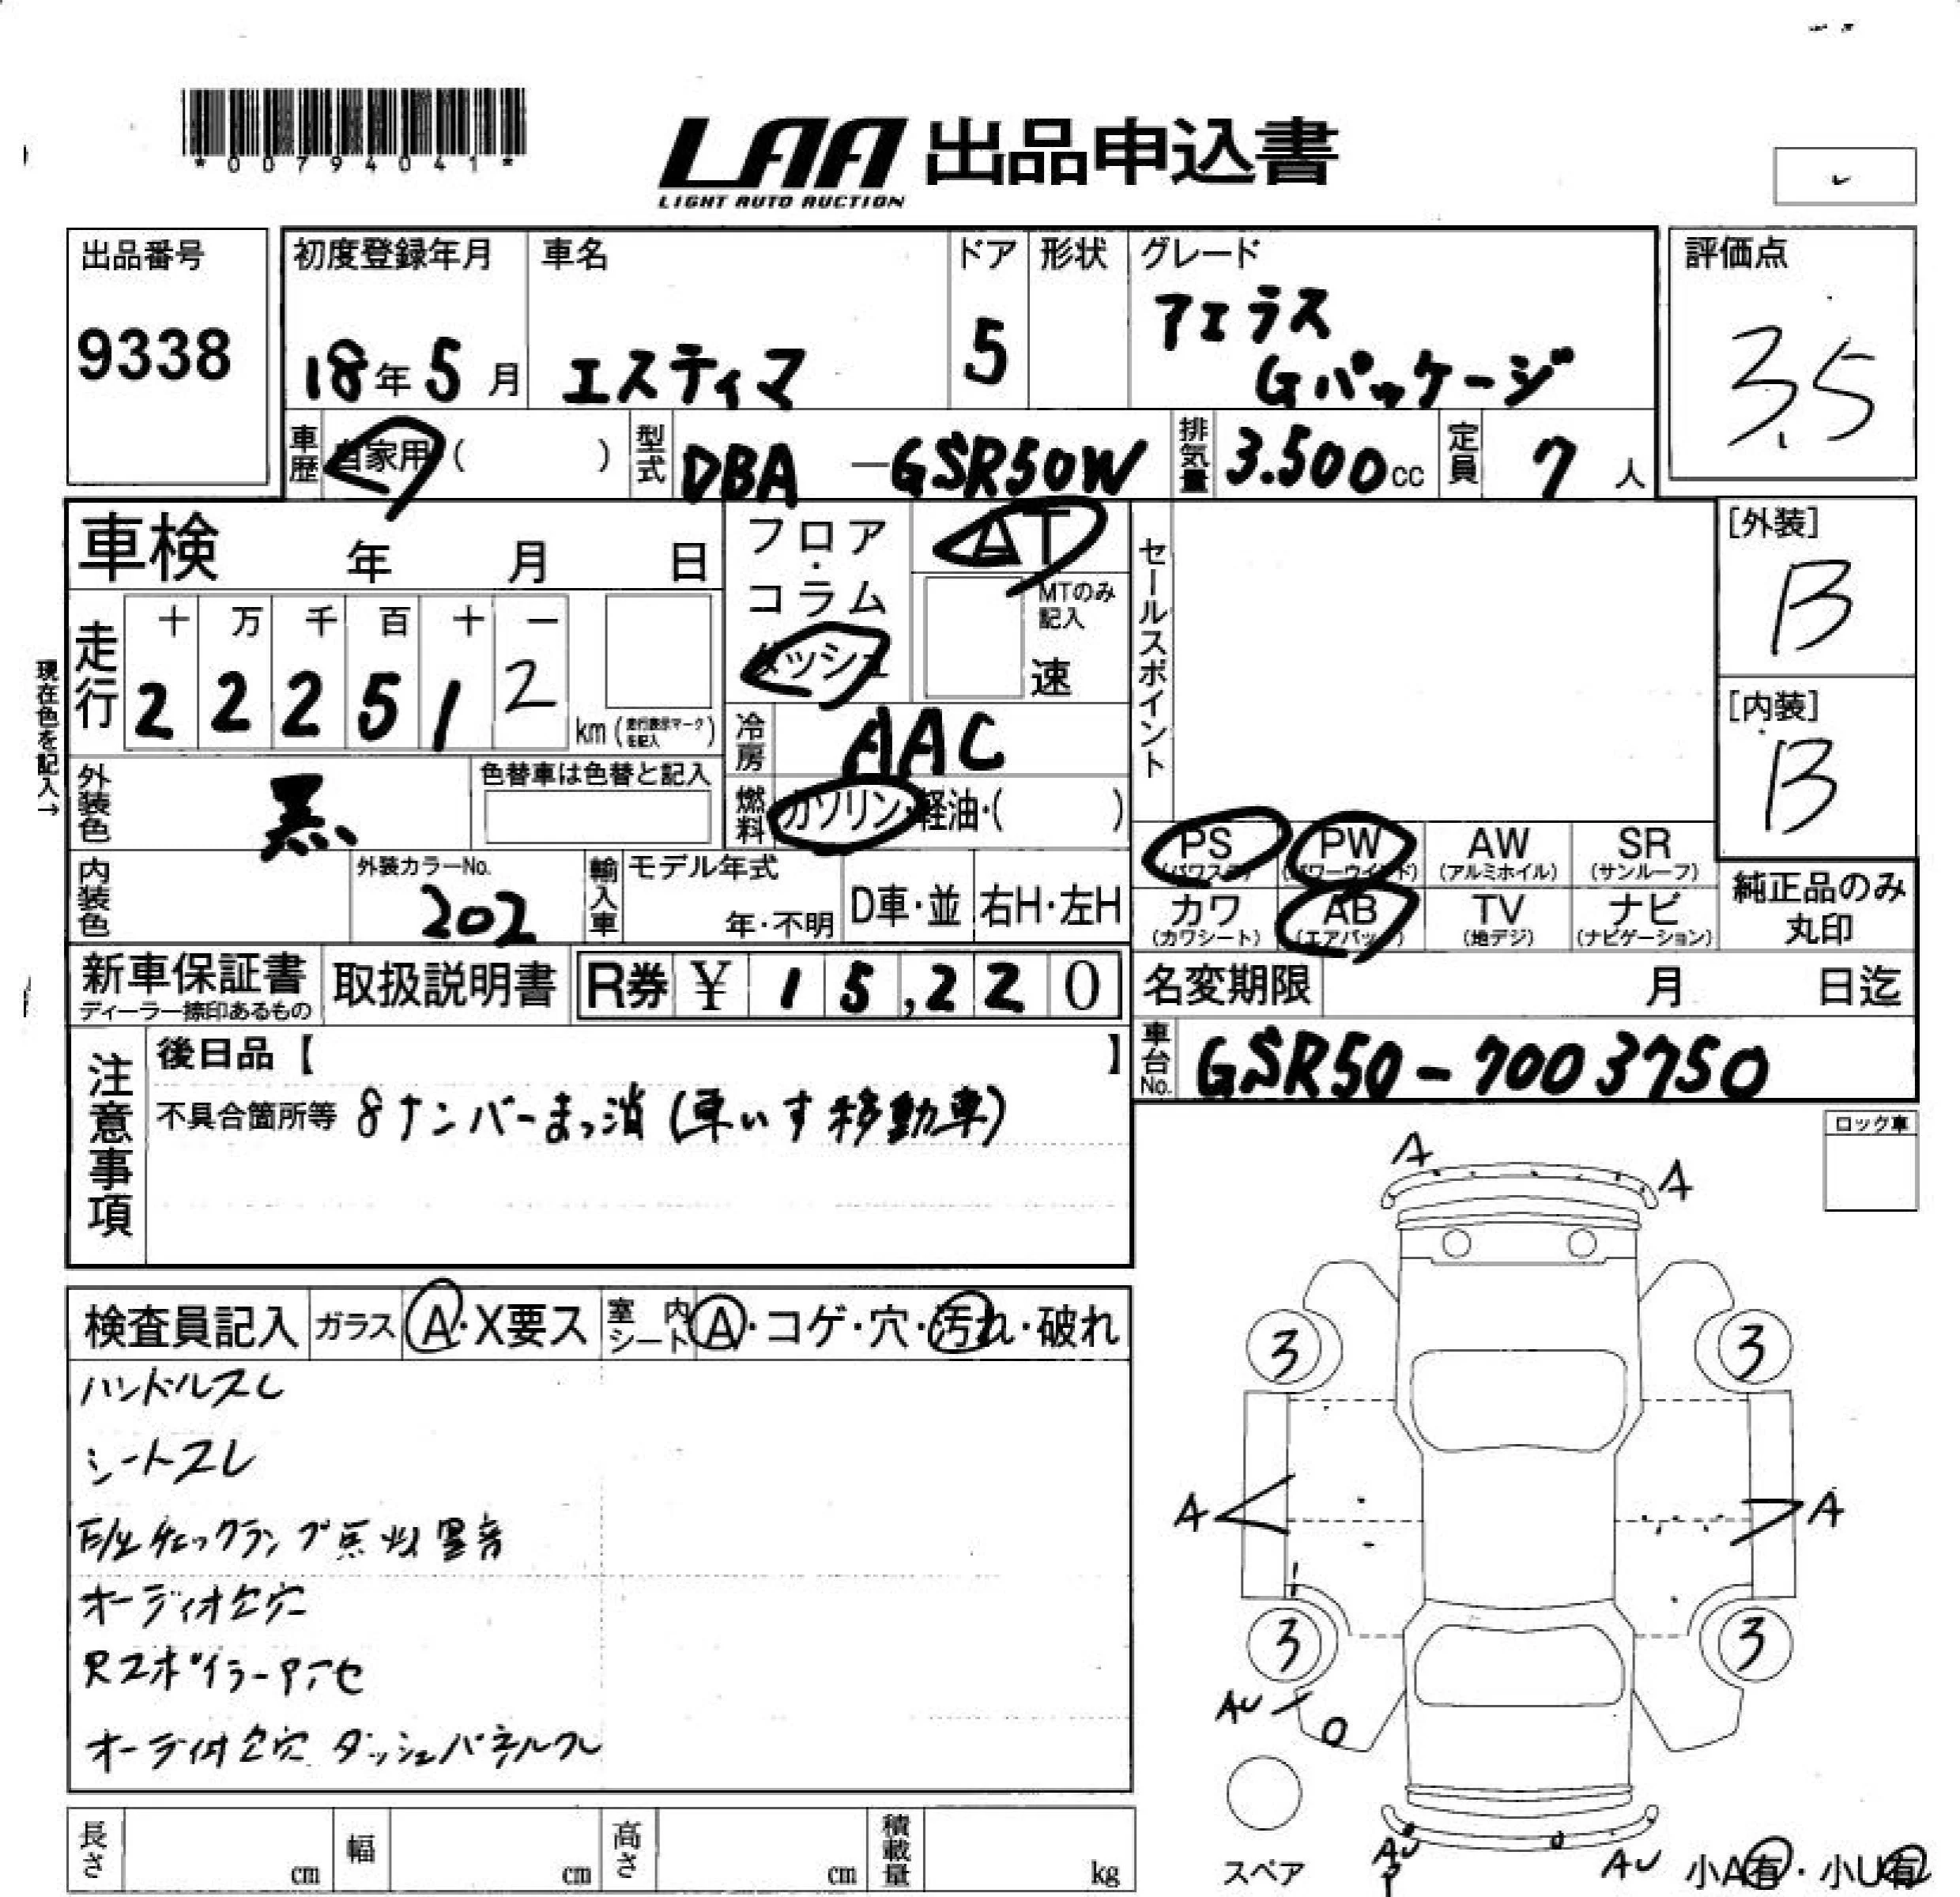 *00794041*
LAA 出品申込書
LIGHT AUTO AUCTION
出品番号
9338
初度登録年月
18年5月
車名
エスティマ
ドア
5
形状
グレード
アエラス
Gパッケージ
評価点
3.5
車歴
自家用 ( )
型式
DBA -GSR50W
排気量
3.500cc
定員
7人
車検 年 月 日
フロア・コラム
ダッシュ
AT
MTのみ記入
速
セールスポイント
[外装]
B
現在色を記入→
走行
十 万 千 百 十 一
2 2 2 5 1 2
km (走行表示マークを記入)
[内装]
B
冷房
AAC
外装色
黒
色替車は色替と記入
燃料
ガソリン・軽油・( )
PS (パワステ)
PW (パワーウインド)
AW (アルミホイル)
SR (サンルーフ)
内装色
外装カラーNo.
202
輸入車
モデル年式
年・不明
D車・並
右H・左H
カワ (カワシート)
AB (エアバッグ)
TV (地デジ)
ナビ (ナビゲーション)
純正品のみ
丸印
新車保証書
ディーラー捺印あるもの
取扱説明書
R券 ¥ 15,220
名変期限 月 日迄
注意事項
後日品【 】
車台No.
GSR50-7003750
不具合箇所等 8ナンバーまっ消(車いす移動車)
ロック車
A A
検査員記入
ガラス A・X要ス
室内シート A・コゲ・穴・汚れ・破れ
ハンドルスレ
シートスレ
E/gチェックランプ点灯 異音
オーディオ欠穴
Rスポイラーアアセ
オーディオ欠穴 ダッシュパネルスレ
3 3
A A
3 3
AU
スペア
AU
P
AU
小A有・小U有
長さ cm
幅 cm
高さ cm
積載量 kg